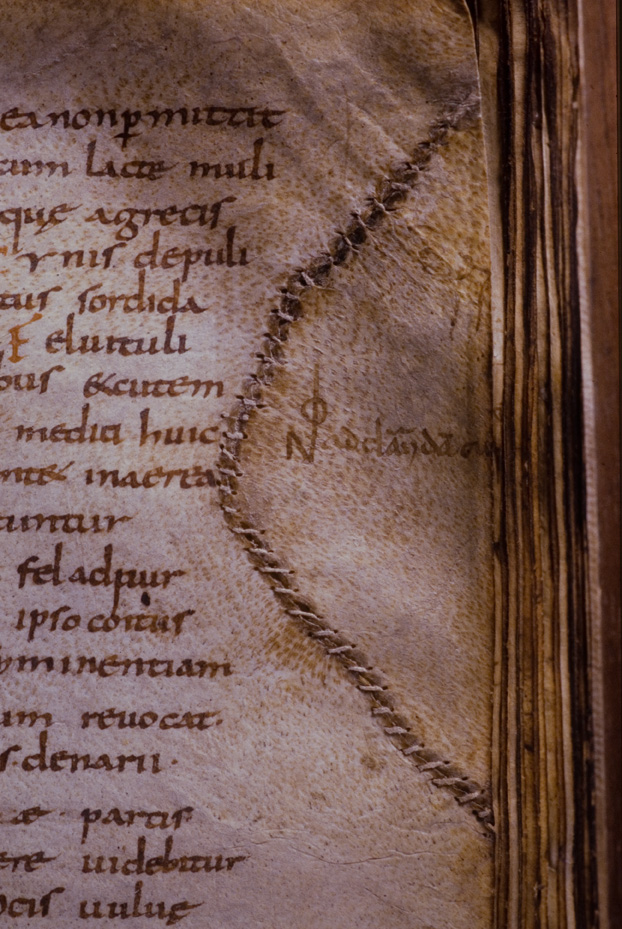 ea non ꝑmittit
cum lacte muli
quę agrecis
ynis depuli
tus sordida
F eluituli
ous & cutem
medici huic
ante inaerea
cuntur
fel adpur
ipso coitus
yminentiam
um reuocat.
s. denarii.
ae partis
ere uidebitur
ocis uuluę
N ad